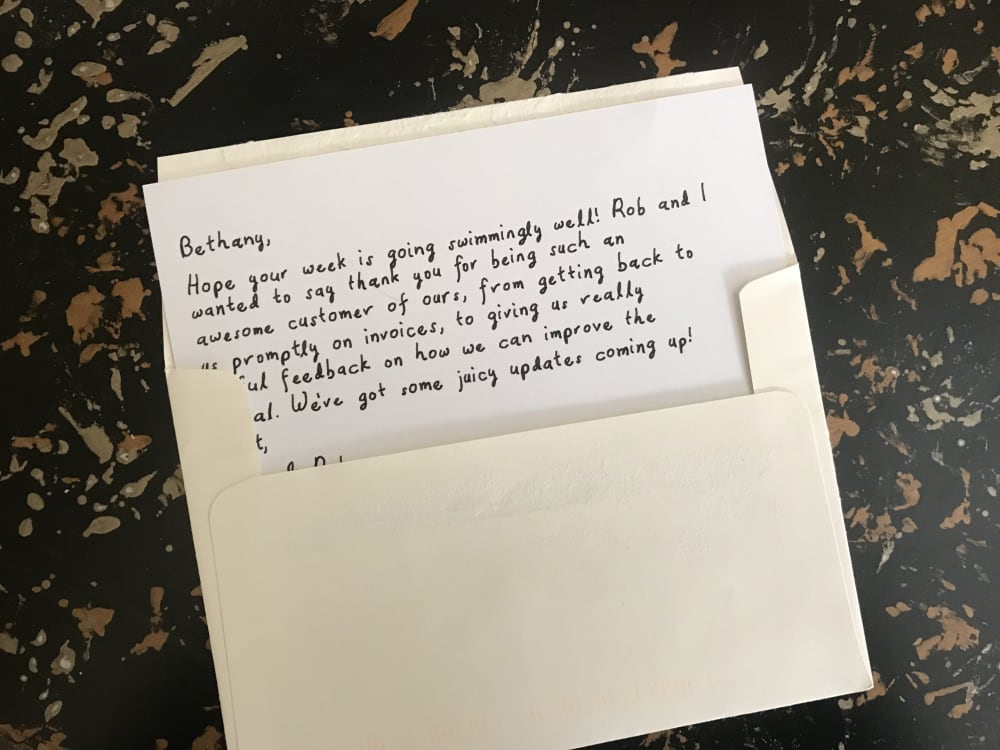 Bethany,
Hope your week is going swimmingly well! Rob and I
wanted to say thank you for being such an
awesome customer of ours, from getting back to
us promptly on invoices, to giving us really
feedback on how we can improve the
We've got some juicy updates coming up!